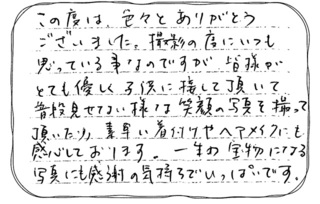 この度は、色々とありがとう
ございました。撮影の度にいつも
思っている事なのですが、皆様が
とても優しく子供に接して頂いて
普段見せない様な笑顔の写真を撮って
頂いたり、素早い着付けやヘアメイクにも
感心しております。一生の宝物になる
写真にも感謝の気持ちでいっぱいです。